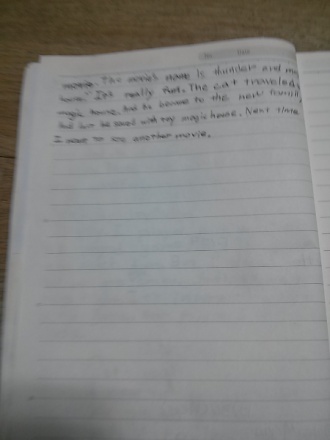 movie. The movie's name is thunder and
house." It's really fun. The cat traveled
magic house. And he became to the new family
and he saved with magic house. Next time
I want to see another movie.